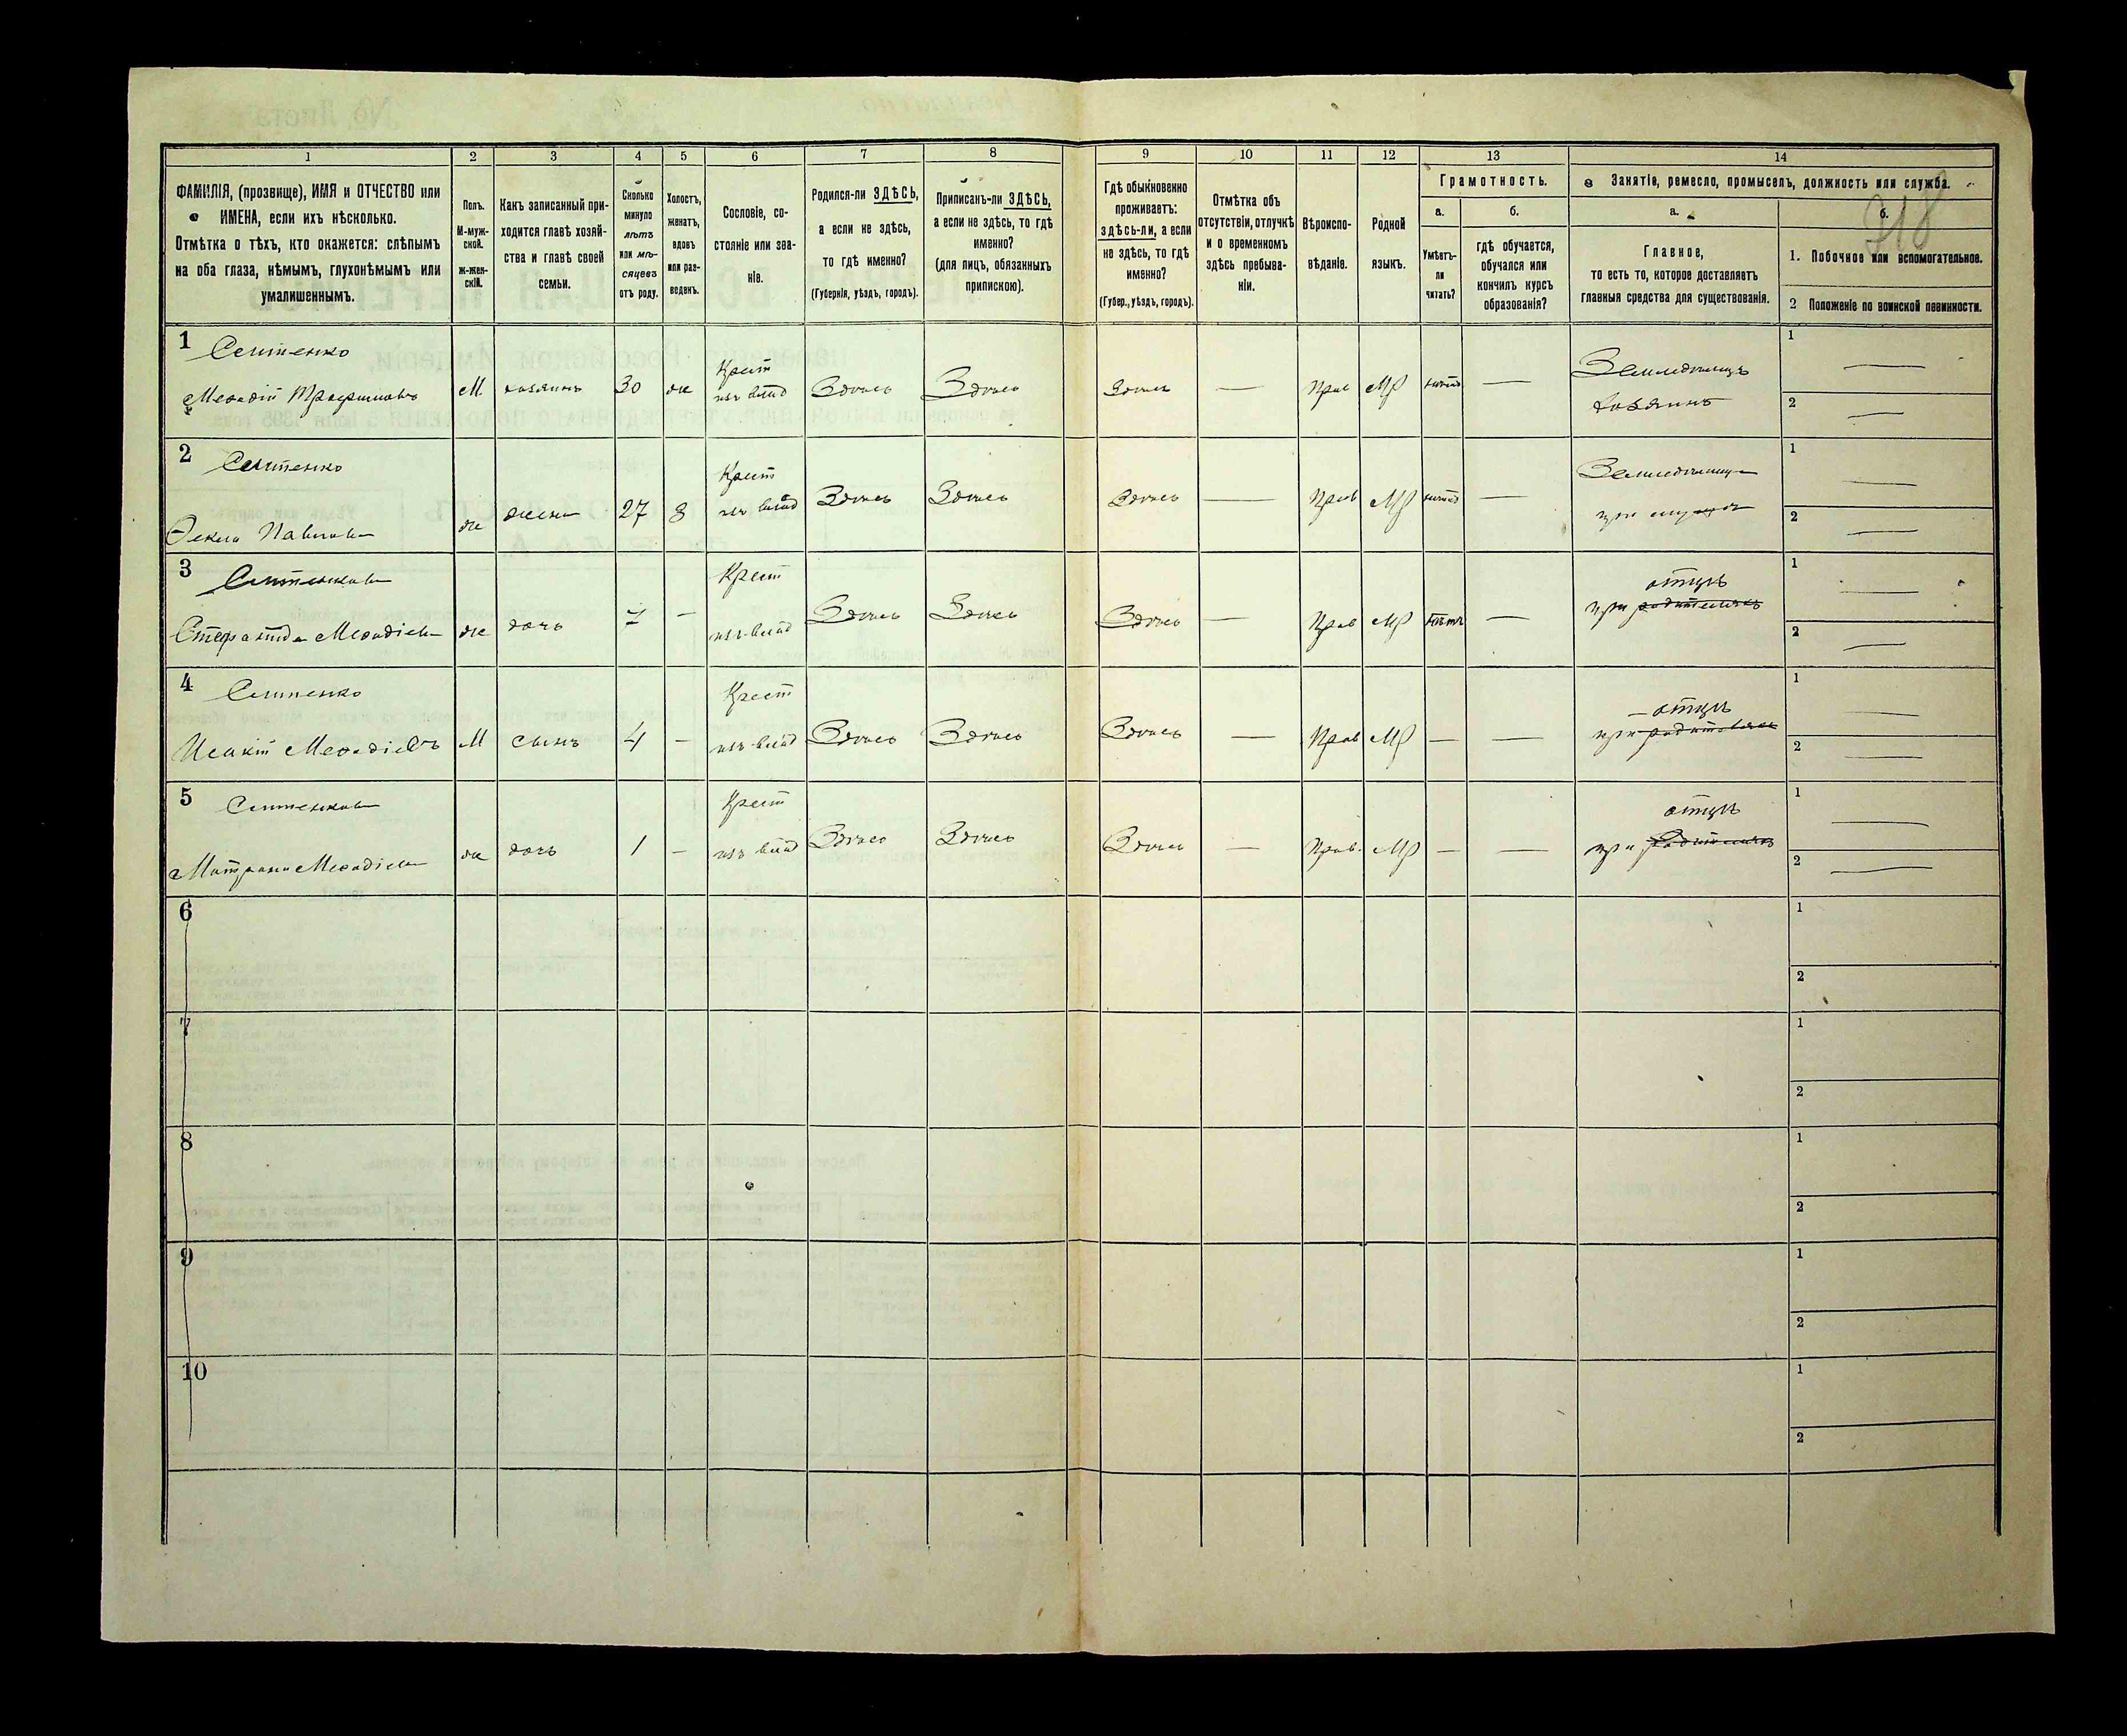 1
2
3
4
5
6
7
8
9
10
11
12
13
14
ФАМИЛІЯ, (прозвище), ИМЯ и ОТЧЕСТВО или
ИМЕНА, если ихъ нѣсколько.
Отмѣтка о тѣхъ, кто окажется: слѣпымъ
на оба глаза, нѣмымъ, глухонѣмымъ или
умалишеннымъ.
Полъ.
М-муж-
ской.
Ж-жен-
скій.
Какъ записанный при-
ходится главѣ хозяй-
ства и главѣ своей
семьи.
Сколько
минуло
лѣтъ
или мѣ-
сяцевъ
отъ роду.
Холостъ,
женатъ,
вдовъ
или раз-
веденъ.
Сословіе, со-
стояніе или зва-
ніе.
Родился-ли ЗДѢСЬ,
а если не здѣсь,
то гдѣ именно?
(Губернія, уѣздъ, городъ).
Приписанъ-ли ЗДѢСЬ,
а если не здѣсь, то гдѣ
именно?
(для лицъ, обязанныхъ
припиской).
Гдѣ обыкновенно
проживаетъ:
здѣсь-ли, а если
не здѣсь, то гдѣ
именно?
(Губер., уѣздъ, городъ).
Отмѣтка объ
отсутствіи, отлучкѣ
и о временномъ
здѣсь пребыва-
ніи.
Вѣроиспо-
вѣданіе.
Родной
языкъ.
Грамотность.
а.
Умѣетъ-
ли
читать?
б.
гдѣ обучается,
обучался или
кончилъ курсъ
образованія?
Занятіе, ремесло, промыселъ, должность или служба.
а.
Главное,
то есть то, которое доставляетъ
главныя средства для существованія.
б.
318
1. Побочное или вспомогательное.
2 Положеніе по воинской повинности.
1
Мефодій
М хозяинъ 30 ж Крест Здѣсь Здѣсь Здѣсь — Прав МР нѣтъ — Земледѣлецъ
хозяинъ
1 —
2 —
2
Павлова
ж жена 27 З Крест Здѣсь Здѣсь Здѣсь — Прав МР нѣтъ —
при мужѣ
1 —
2 —
3
Мефодіева
ж дочь 7 — Крест Здѣсь Здѣсь Здѣсь — Прав МР нѣтъ — отцѣ
при родителяхъ
1 —
2 —
4
Мефодіевъ
М сынъ 4 — Крест Здѣсь Здѣсь Здѣсь — Прав МР — — отцѣ
при родителяхъ
1 —
2 —
5
Матрона Мефодіева
ж дочь 1 — Крест Здѣсь Здѣсь Здѣсь — Прав. МР — — отцѣ
при родителяхъ
1 —
2 —
6
1
2
7
1
2
8
1
2
9
1
2
10
1
2